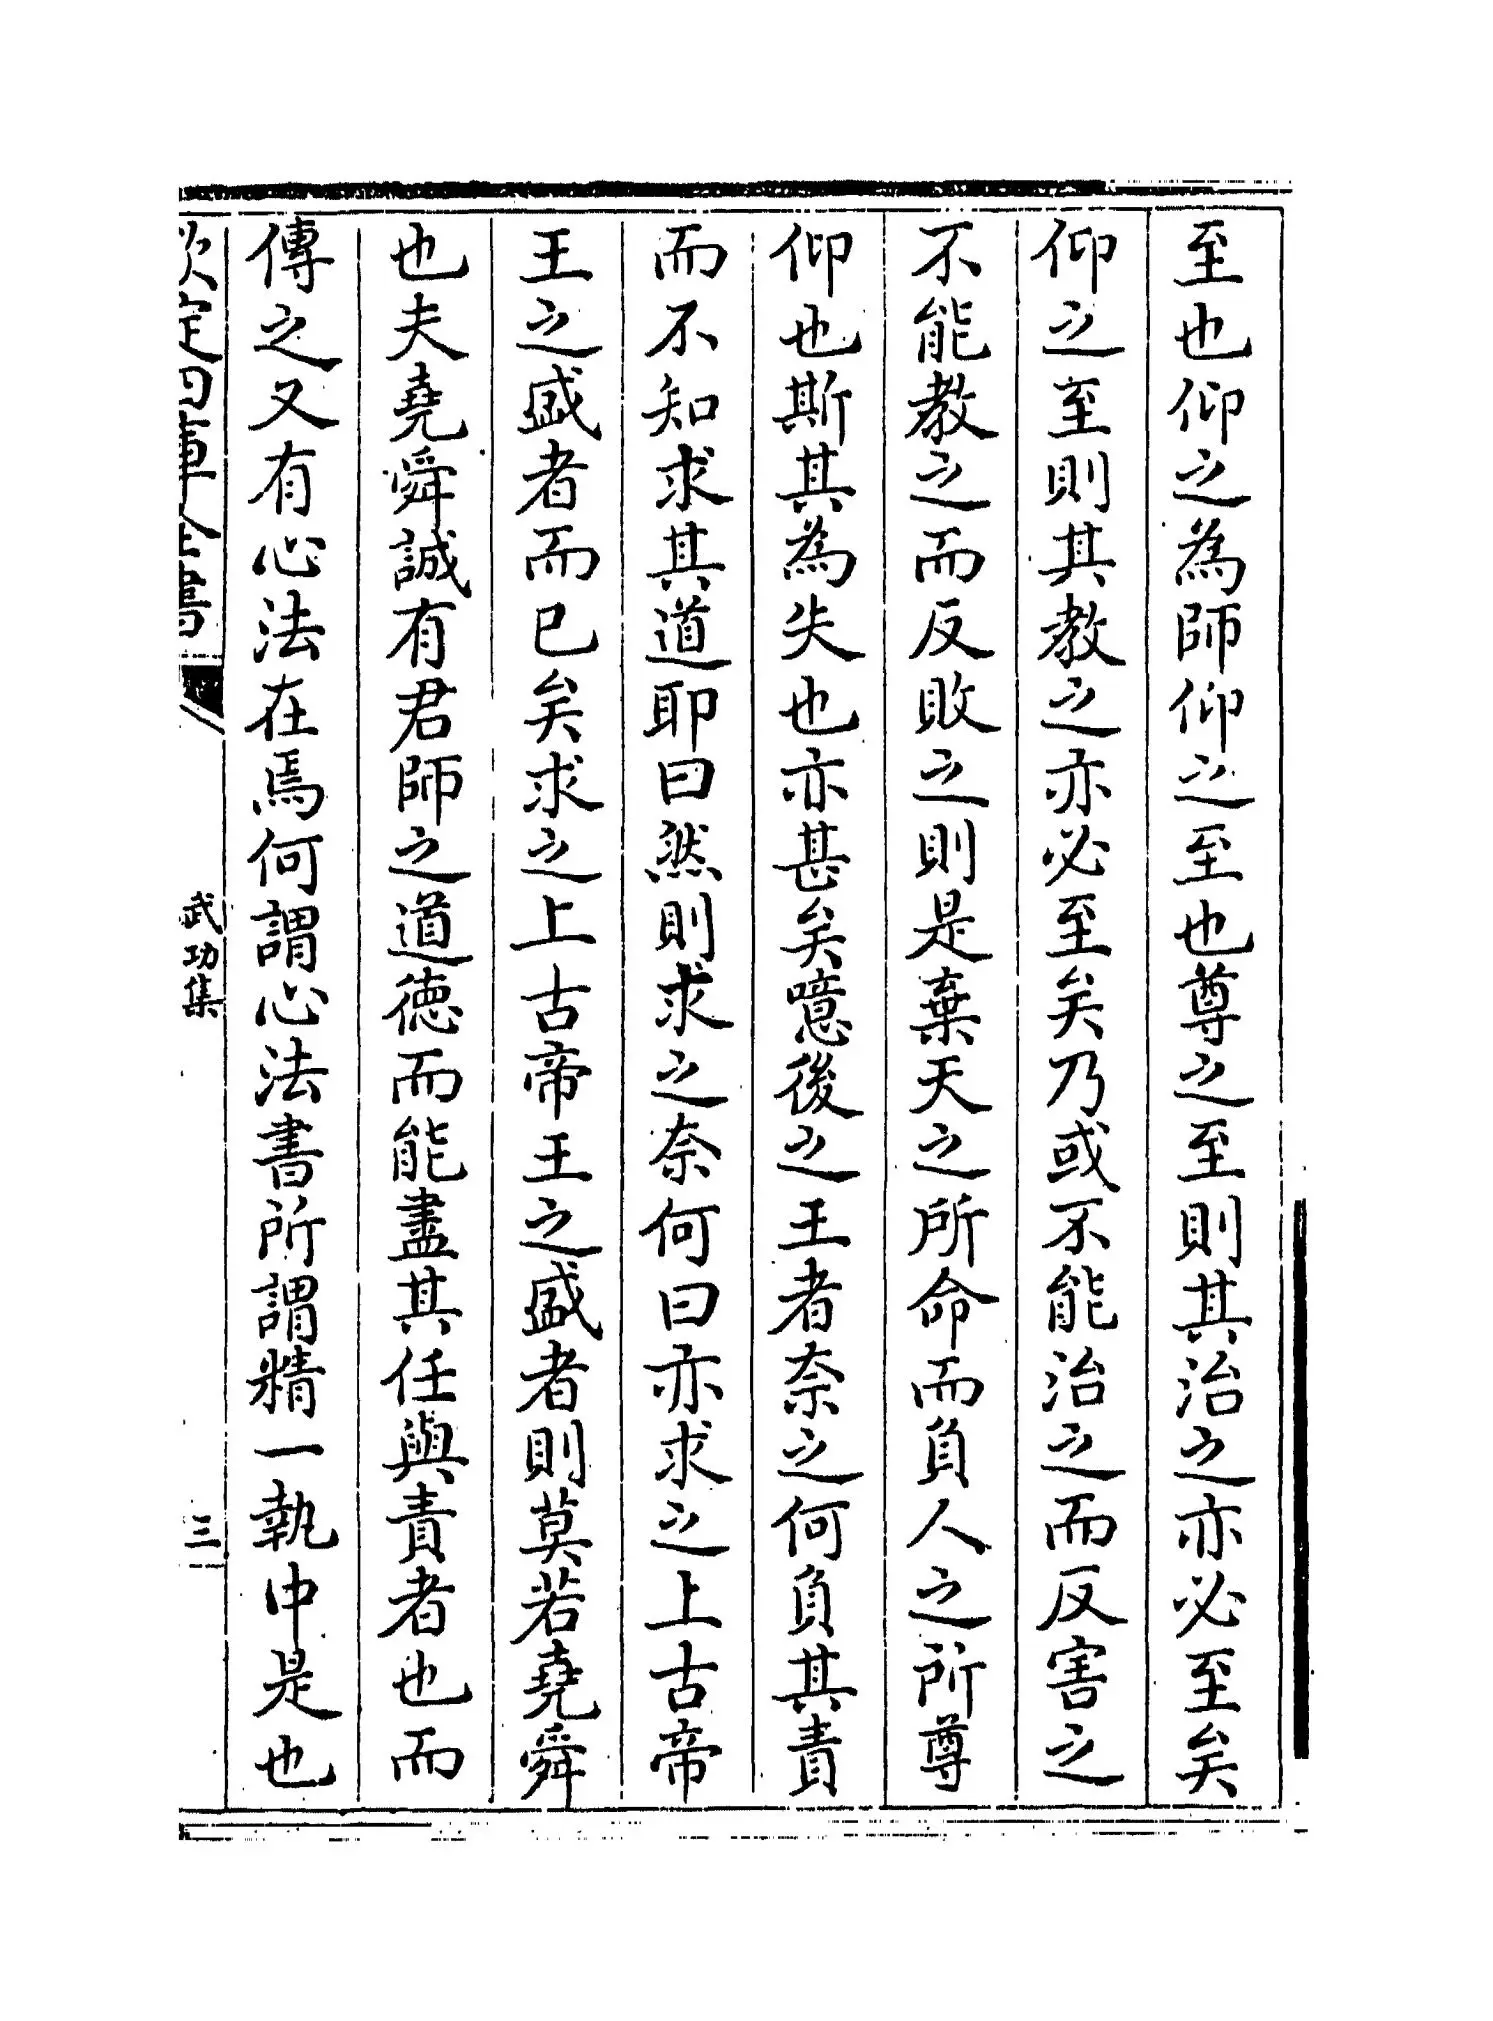 至也仰之為師仰之至也尊之至則其治之亦必至矣
仰之至則其教之亦必至矣乃或不能治之而反害之
不能教之而反敗之則是棄天之所命而負人之所尊
仰也斯其為失也亦甚矣噫後之王者奈之何負其責
而不知求其道耶曰然則求之奈何曰亦求之上古帝
王之盛者而已矣求之上古帝王之盛者則莫若堯舜
也夫堯舜誠有君師之道德而能盡其任與責者也而
傳之又有心法在焉何謂心法書所謂精一執中是也
欽定四庫全書
武功集
三